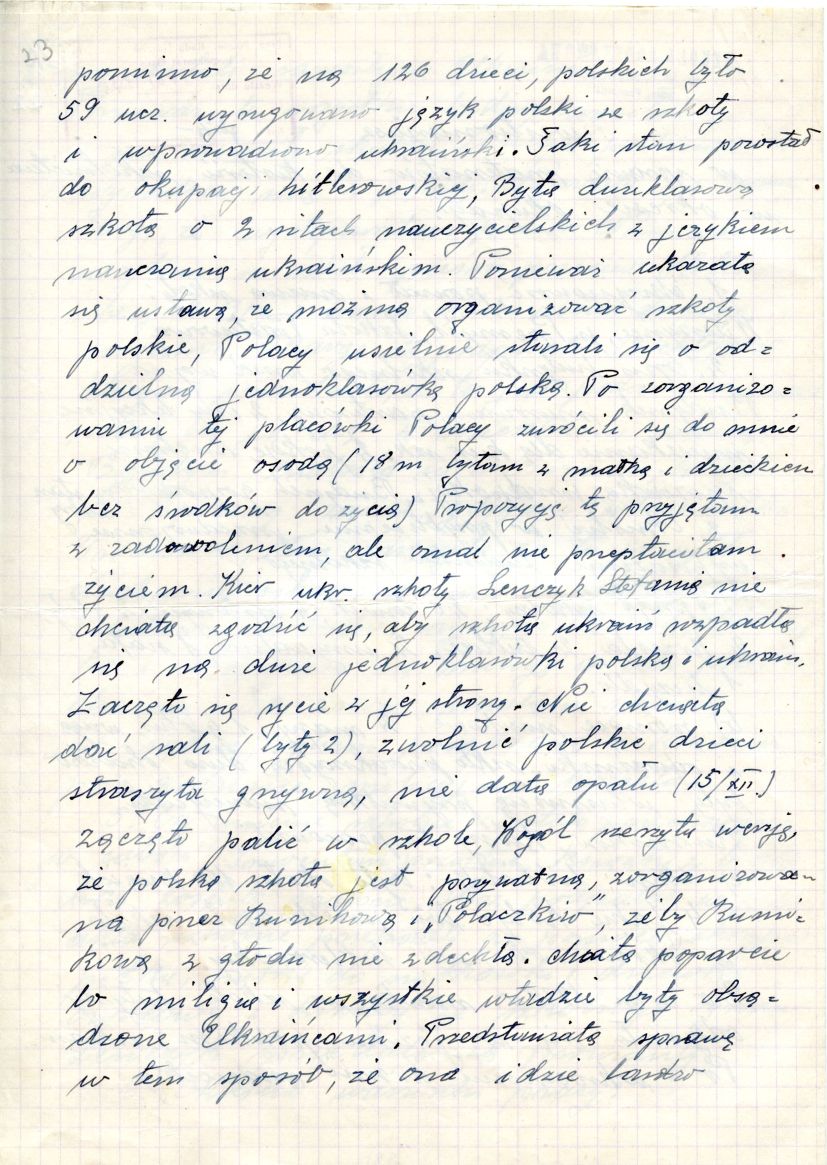 23
pomimo, że na 126 dzieci, polskich było
59 ucz. wyrugowano język polski ze szkoły
i wprowadzono ukraiński. Taki stan pozostał
do okupacji hitlerowskiej, Była dwuklasowa
szkoła o 2 siłach nauczycielskich z językiem
nauczania ukraińskim. Ponieważ ukazała
się ustawa, że można organizować szkoły
polskie, Polacy usielnie starali się o od=
dzielną jednoklasówkę polską. Po zorganizo=
waniu tej placówki Polacy zwrócili się do mnie
o objęcie osadą (18 m byłam z matką i dzieckiem
bez środków do życia) Propozycję tę przyjęłam
z zadowoleniem, ale omal nie przepłaciłam
życiem. Kier ukr. szkoły Lenczyk Stefania nie
chciała zgodzić się, aby szkoła ukraiń rozpadła
się na dwie jednoklasówki polską i ukrain.
Zaczęło się życie z jej strony. Nie chciała
dać sali (były 2), zwolnić polskie dzieci
straszyła grzywną, nie dała opału (15/XII.)
zaczęto palić w szkole, Wogól szerzyła wersję,
że polska szkoła jest prywatną, zorganizowa-
na przez Rumikową i „Polaczków", żeby Rumi-
kowa z głodu nie zdechła. Miała poparcie
bo milicja i wszystkie władzie były obsa=
dzone Ukraińcami. Przedstawiała sprawę
w tem sposób, że ona idzie bardzo